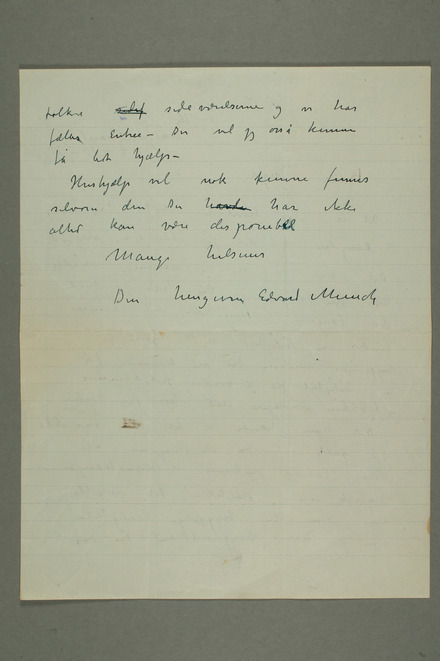 sideværelserne og vi har
fælles Entree – Du vil jeg også kunne
få lidt hjælp –
Hushjælp vil nok kunne finnes
selvom den Du havde har ikke
altid kan være disponibel
Mange hilsener
Din hengivne Edvard Munch